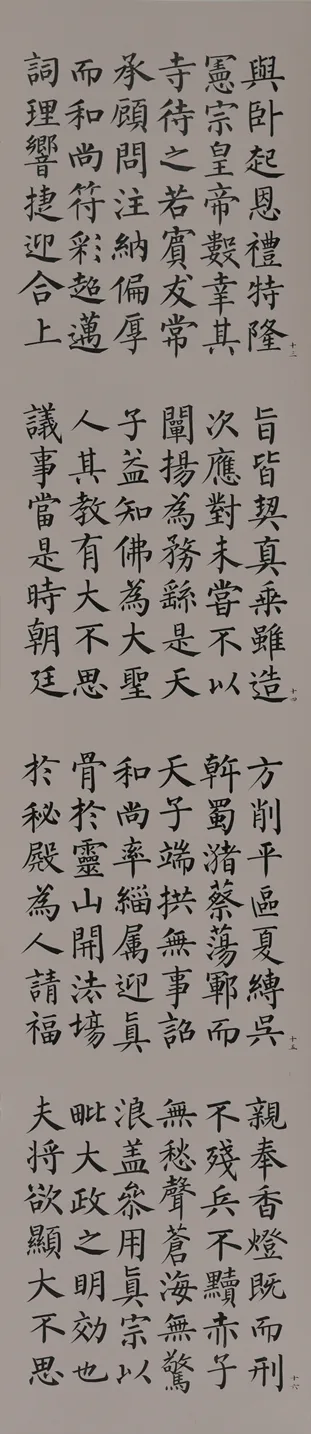 與卧起恩禮特隆
憲宗皇帝數幸其
寺待之若賓友常
承顧問注納偏厚
而和尚符彩超邁
詞理響捷迎合上
十三
旨皆契真乘雖造
次應對未嘗不以
闡揚為務繇是天
子益知佛為大聖
人其教有大不思
議事當是時朝廷
十四
方削平區夏縛吳
斡蜀瀦蔡蕩鄆而
天子端拱無事詔
和尚率緇属迎真
骨於靈山開法場
於秘殿為人請福
十五
親奉香燈既而刑
不殘兵不黷赤子
無愁聲蒼海無驚
浪盖叅用真宗以
毗大政之明効也
夫將欲顯大不思
十六